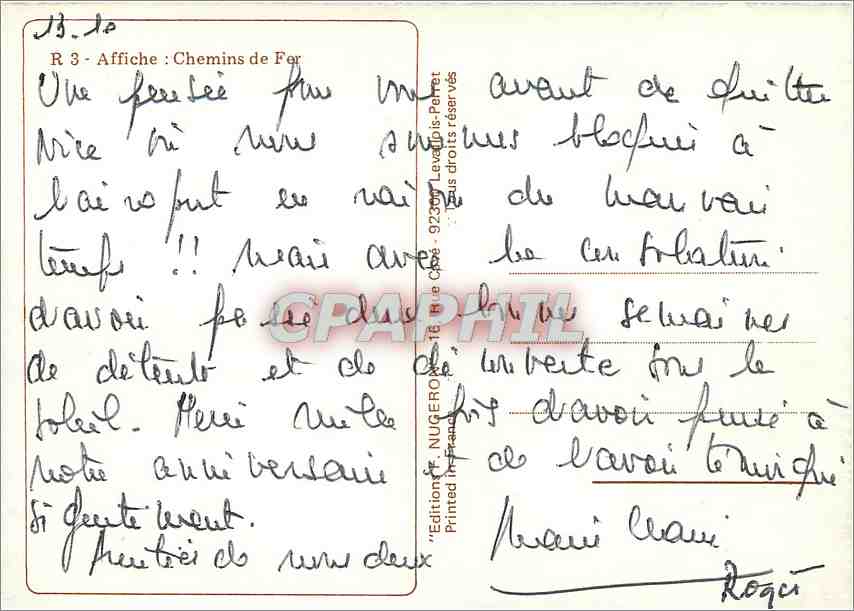 13-10
R 3 - Affiche : Chemins de Fer
Une pensée pour vous avant de quitter
Nice où nous sommes bloqués à
l'aéroport en raison du mauvais
temps !! mais avec la consolation
d'avoir passé deux bonnes semaines
de détente et de découverte sous le
soleil. Merci mille fois d'avoir pensé à
notre anniversaire et de l'avoir témoigné
si gentiment.
Amitiés de nous deux
Marie Claire
Roger
"Editions F. NUGERON" - 16, Rue Cavé - 92300 Levallois-Perret
Printed in France : Tous droits réservés
CPAPHIL